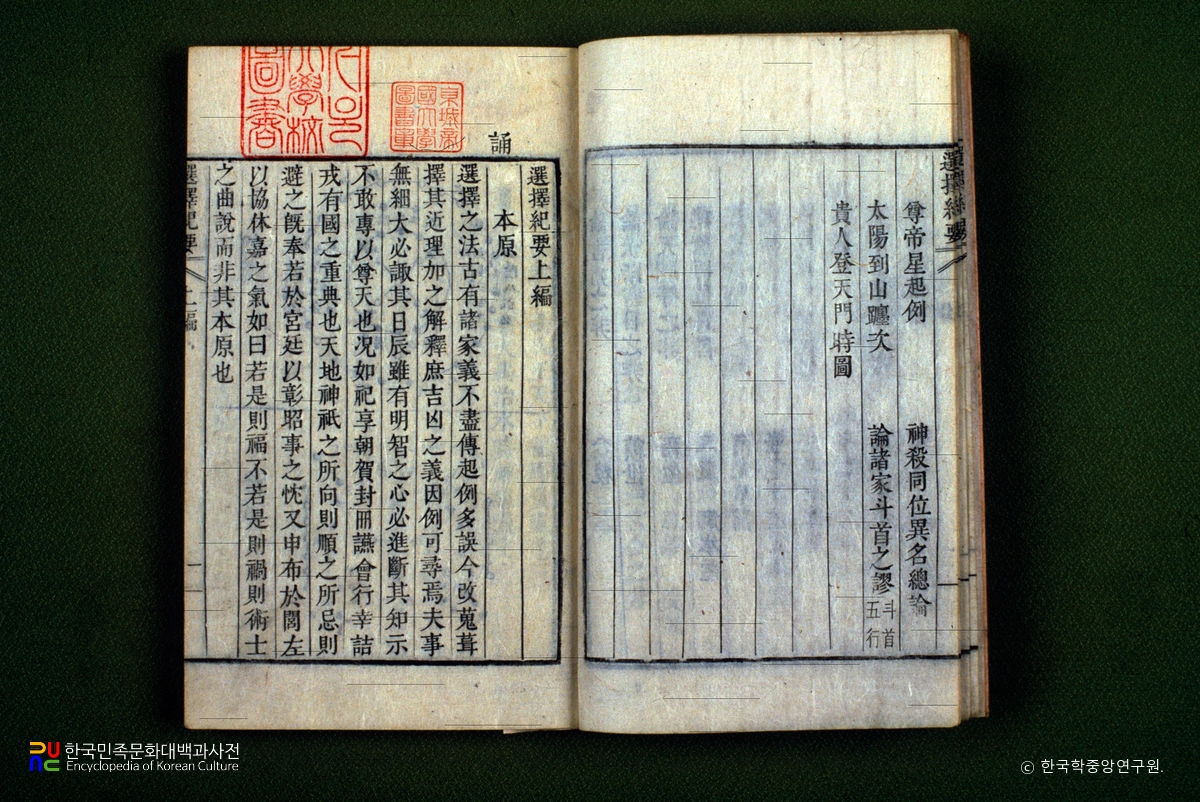 選擇紀要
尊帝星起例 神殺同位異名總論
太陽到山躔次 論諸家斗首之謬 斗首五行
貴人登天門時圖
誦
京城帝
國大學
圖書章
大學校
圖書
選擇紀要上編
本原
選擇之法古有諸家義不盡傳起例多誤今改蒐葺
擇其近理加之解釋庶吉凶之義因例可尋焉夫事
無細大必諏其日辰雖有明智之心必進斷其知示
不敢專以尊天也况如祀享朝賀封冊讌會行幸詰
戎有國之重典也天地神祇之所向則順之所忌則
避之旣奉若於宮廷以彰昭事之忱又申布於閭左
以協休嘉之氣如曰若是則福不若是則禍則術士
之曲說而非其本原也
選擇紀要 上編 一
한국민족문화대백과사전
Encyclopedia of Korean Culture
ⓒ 한국학중앙연구원.